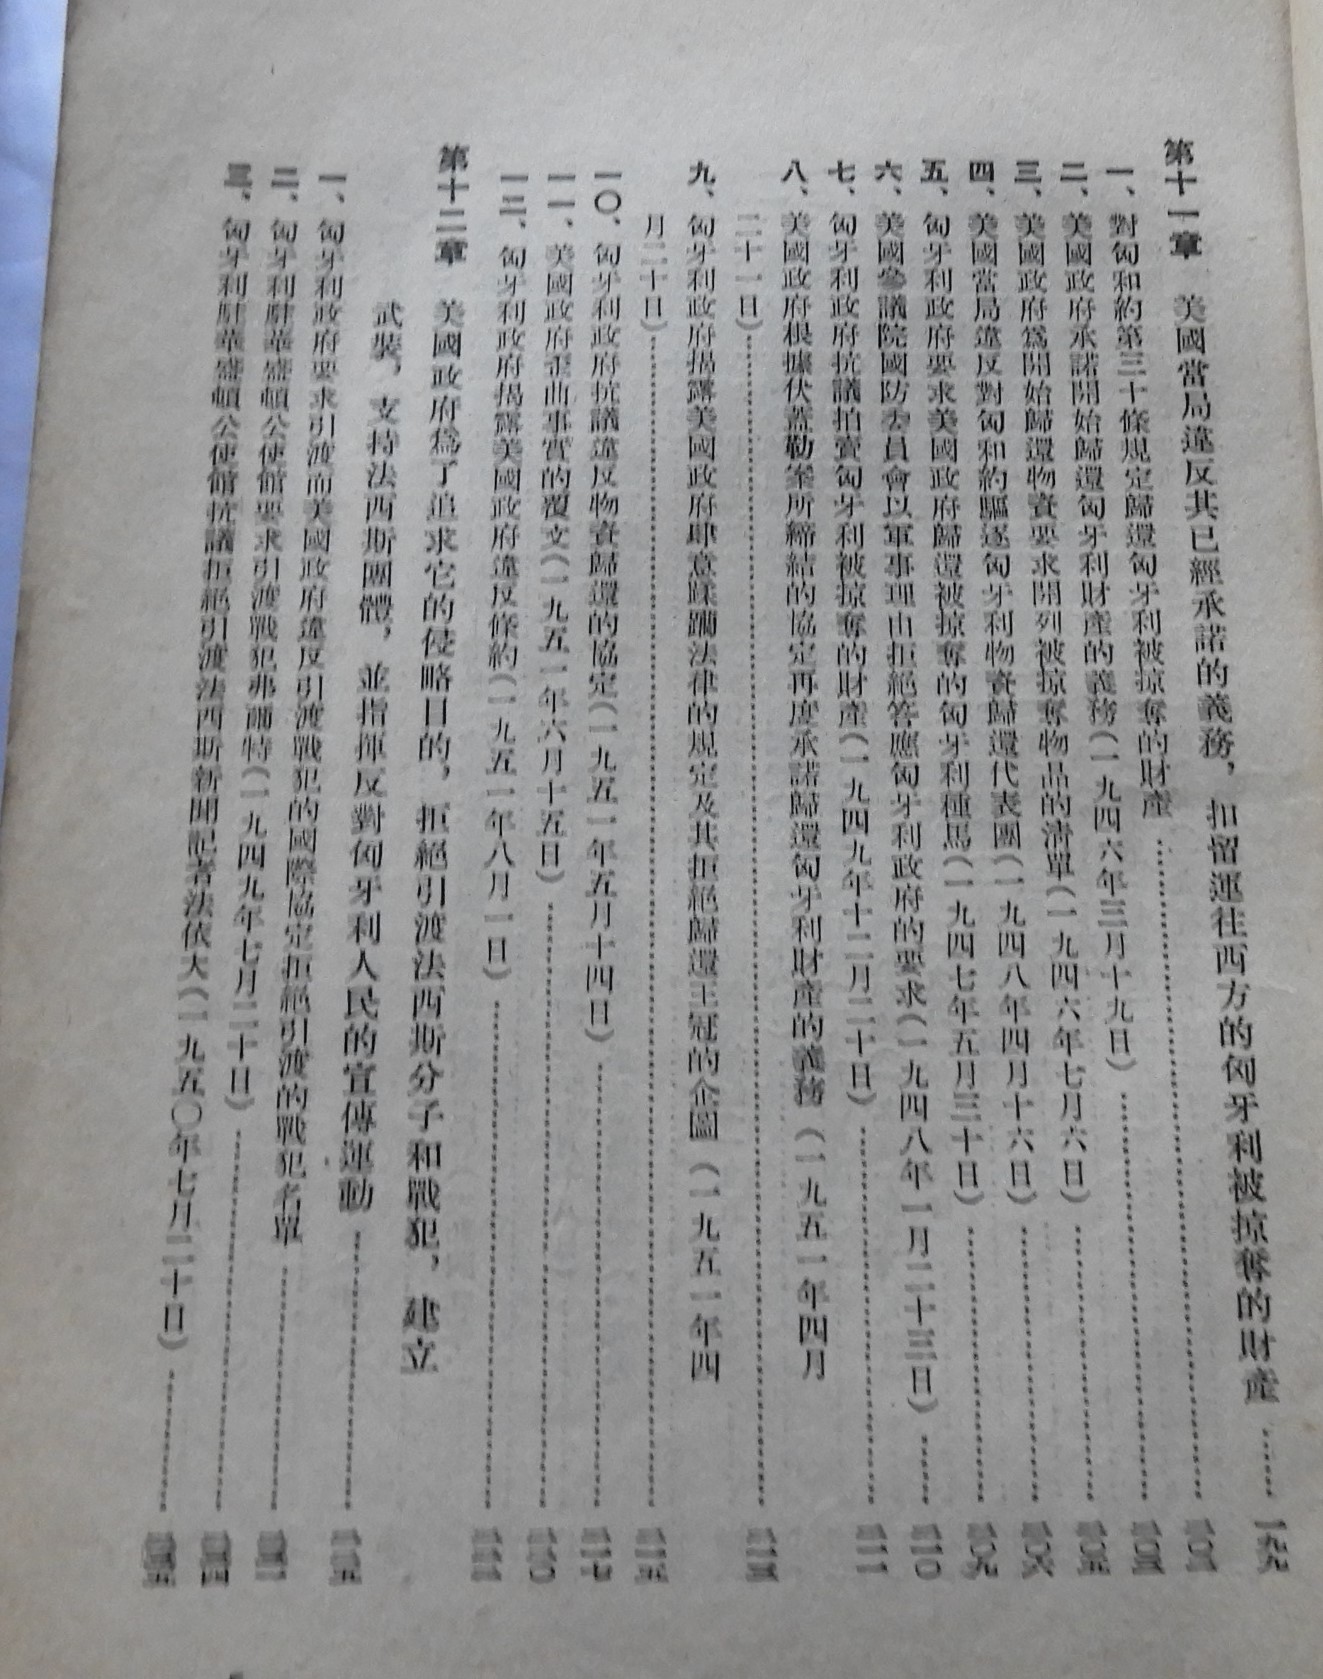 第十一章　美國當局違反其已經承諾的義務，扣留運往西方的匈牙利被掠奪的財產……一九九
一、對匈和約第三十條規定歸還匈牙利被掠奪的財產……
二、美國政府承諾開始歸還匈牙利財產的義務（一九四六年三月十九日）……
三、美國政府爲開始歸還物資要求開列被掠奪物品的清單（一九四六年七月六日）……
四、美國當局違反對匈和約驅逐匈牙利物資歸還代表團（一九四八年四月十六日）……
五、匈牙利政府要求美國政府歸還被掠奪的匈牙利種馬（一九四七年五月三十日）……
六、美國參議院國防委員會以軍事理由拒絕答應匈牙利政府的要求（一九四八年一月二十三日）……二一〇
七、匈牙利政府抗議拍賣匈牙利被掠奪的財產（一九四九年十二月二十日）……二一一
八、美國政府根據伏蓋勒案所締結的協定再度承諾歸還匈牙利財產的義務（一九五一年四月
二十一日）……
九、匈牙利政府揭露美國政府肆意蹂躪法律的規定及其拒絕歸還王冠的企圖（一九五一年四
月二十日）……二一五
一〇、匈牙利政府抗議違反物資歸還的協定（一九五一年五月十四日）……二一七
一一、美國政府歪曲事實的覆文（一九五一年六月十五日）……
一二、匈牙利政府揭露美國政府違反條約（一九五一年八月一日）……
第十二章　美國政府爲了追求它的侵略目的，拒絕引渡法西斯分子和戰犯，建立
武裝，支持法西斯團體，並指揮反對匈牙利人民的宣傳運動……
一、匈牙利政府要求引渡而美國政府違反引渡戰犯的國際協定拒絕引渡的戰犯名單……
二、匈牙利駐華盛頓公使館要求引渡戰犯弗爾特（一九四九年七月二十日）……
三、匈牙利駐華盛頓公使館抗議拒絕引渡法西斯新聞記者法依大（一九五〇年七月二十日）……